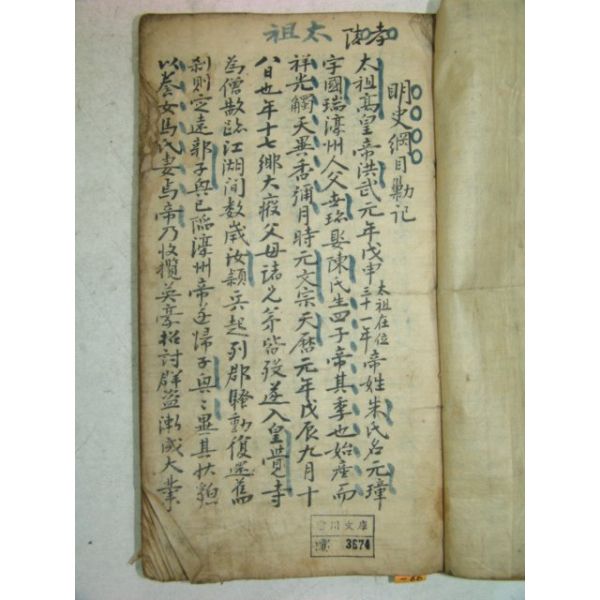 太祖
孝陵
明史綱目勦記
太祖高皇帝洪武元年戊申太祖在位三十一年帝姓朱氏名元璋
字國瑞濠州人父世珍娶陳氏生四子帝其季也始產而
祥光觸天異香彌月時元文宗天曆元年戊辰九月十
八日也年十七鄉大疫父母諸兄弟皆歿遂入皇覺寺
為僧歎臨江湖間數歲汝潁兵起列郡騷動復還舊
刹則定遠郭子興已陷濠州帝乃歸子興〻異其狀貌
以養女馬氏妻焉帝乃收攬英豪招討群盜漸成大業
川文庫
3674